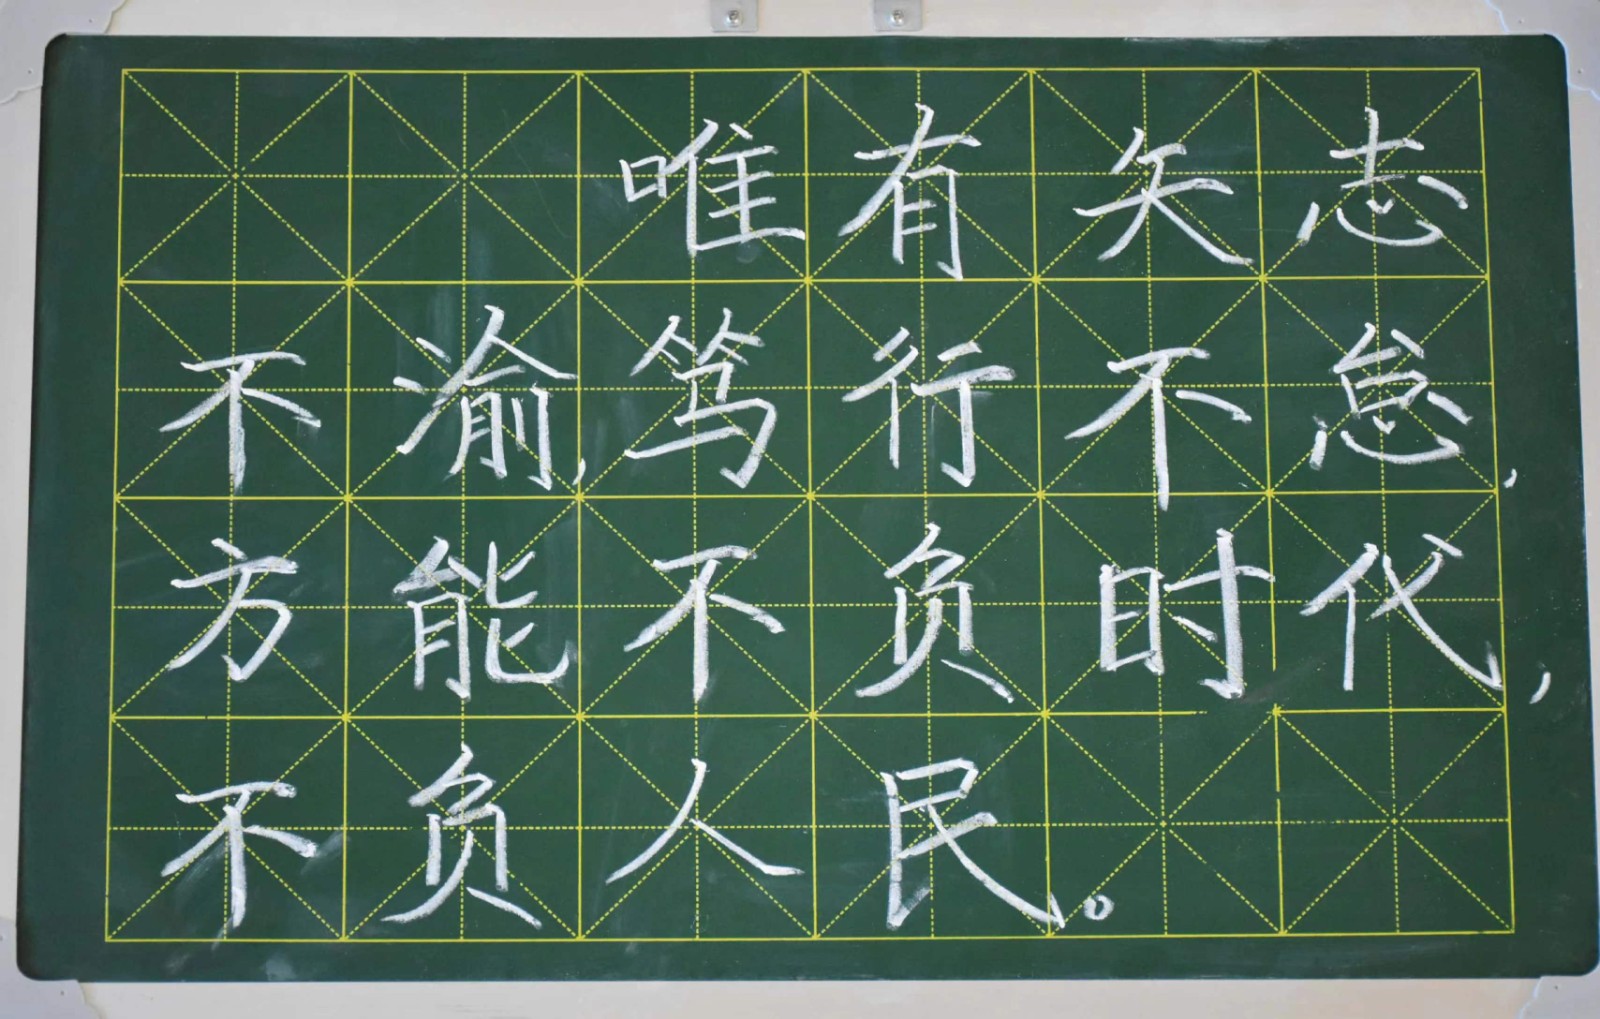 唯有矢志
不渝,笃行不怠,
方能不负时代,
不负人民。